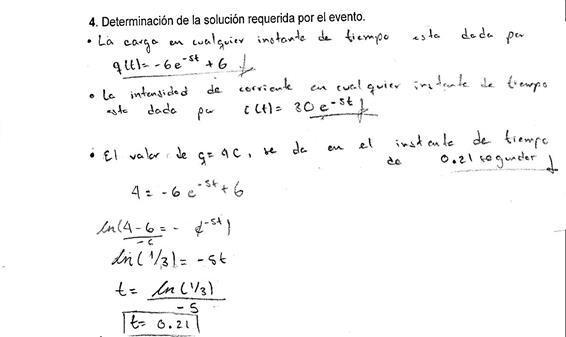 4. Determinación de la solución requerida por el evento.
• La carga en cualquier instante de tiempo esta dada por
q(t) = -6e^-5t + 6
• La intensidad de corriente en cualquier instante de tiempo
esta dada por i(t) = 30 e^-5t
• El valor de q = 4C, se da en el instante de tiempo
de 0.21 segundos
4 = -6 e^-5t + 6
ln(4-6 = - e^-5t)
-6
ln(1/3) = -5t
t = ln(1/3)
-5
t = 0.21